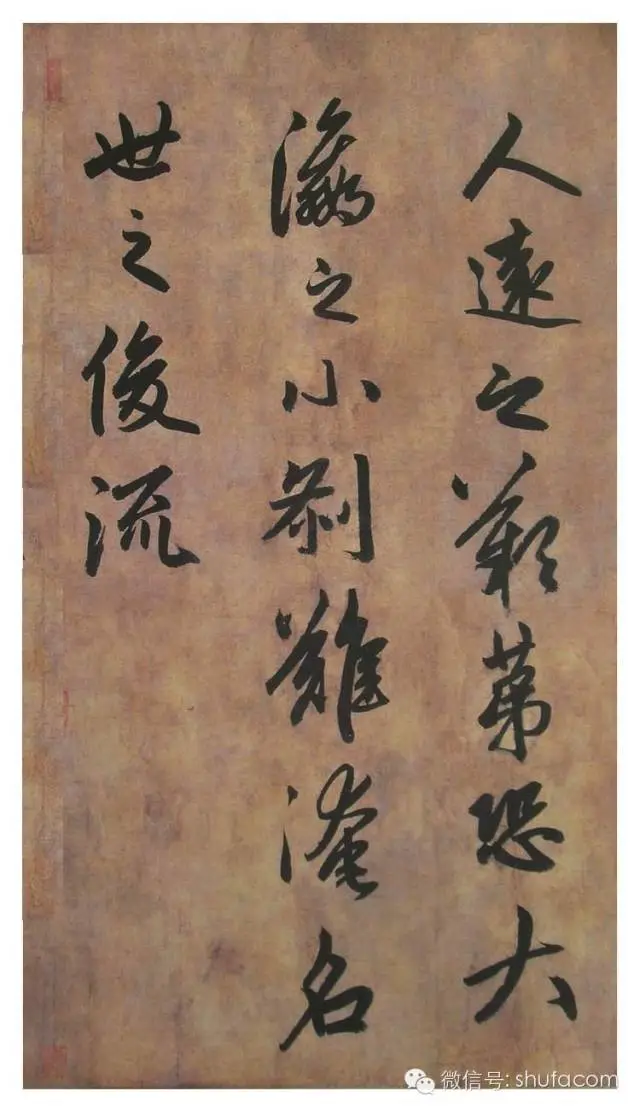 人遠之歎苐恐大
瀛之小刹難淹名
世之俊流
微信号: shufacom